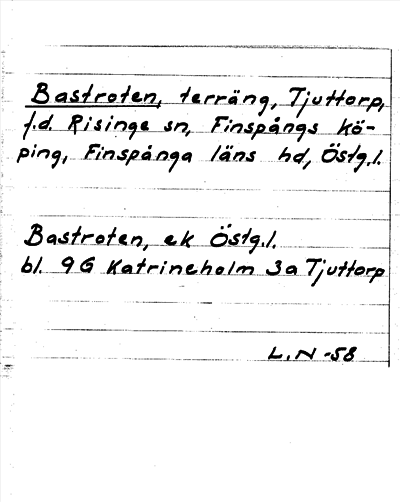 Bastroten, terräng, Tjuttorp,
f.d. Risinge sn, Finspångs kö-
ping, Finspånga läns hd, Östg.l.
Bastroten, ek Östg.l.
bl. 9G Katrineholm 3a Tjuttorp
L.N -58